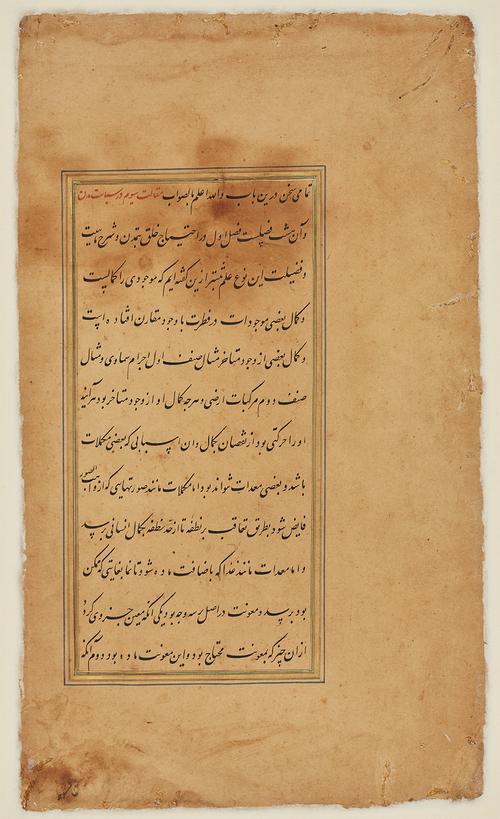 تمامی سخن درین باب والله اعلم بالصواب مقالت سیوم در سیاست مدن
و آن هشت فصلست فصل اول در احتیاج خلق بتمدن و شرح ماهیت
و فضیلت این نوع علم پیشتر ازین گفته‌ایم که هر موجودی را کمالیست
و کمال بعضی موجودات در فطرت با وجود مقارن افتاده است
و کمال بعضی از وجود متاخر مثال صنف اول اجرام سماوی و مثال
صنف دوم مرکبات ارضی و هرچه کمال او از وجود متاخر بود هرآینه
او را حرکتی بود از نقصان بکمال و آن اسبابی که بعضی مکملات
باشد و بعضی معدات نتواند بود اما مکملات مانند صورتهایی که از واهب الصور
فایض شود بطریق تعاقب بر نطفه تا از حد نطفه بکمال انسانی برسد
و اما معدات مانند غذا که باضافت ماده شود تا نما بغایتی که ممکن
بود برسد و معونت در اصل بر سه وجه بود یکی آنکه معین جزوی گردد
از آن چیز که بمعونت محتاج بود و این معونت ماده بود دوم آنکه